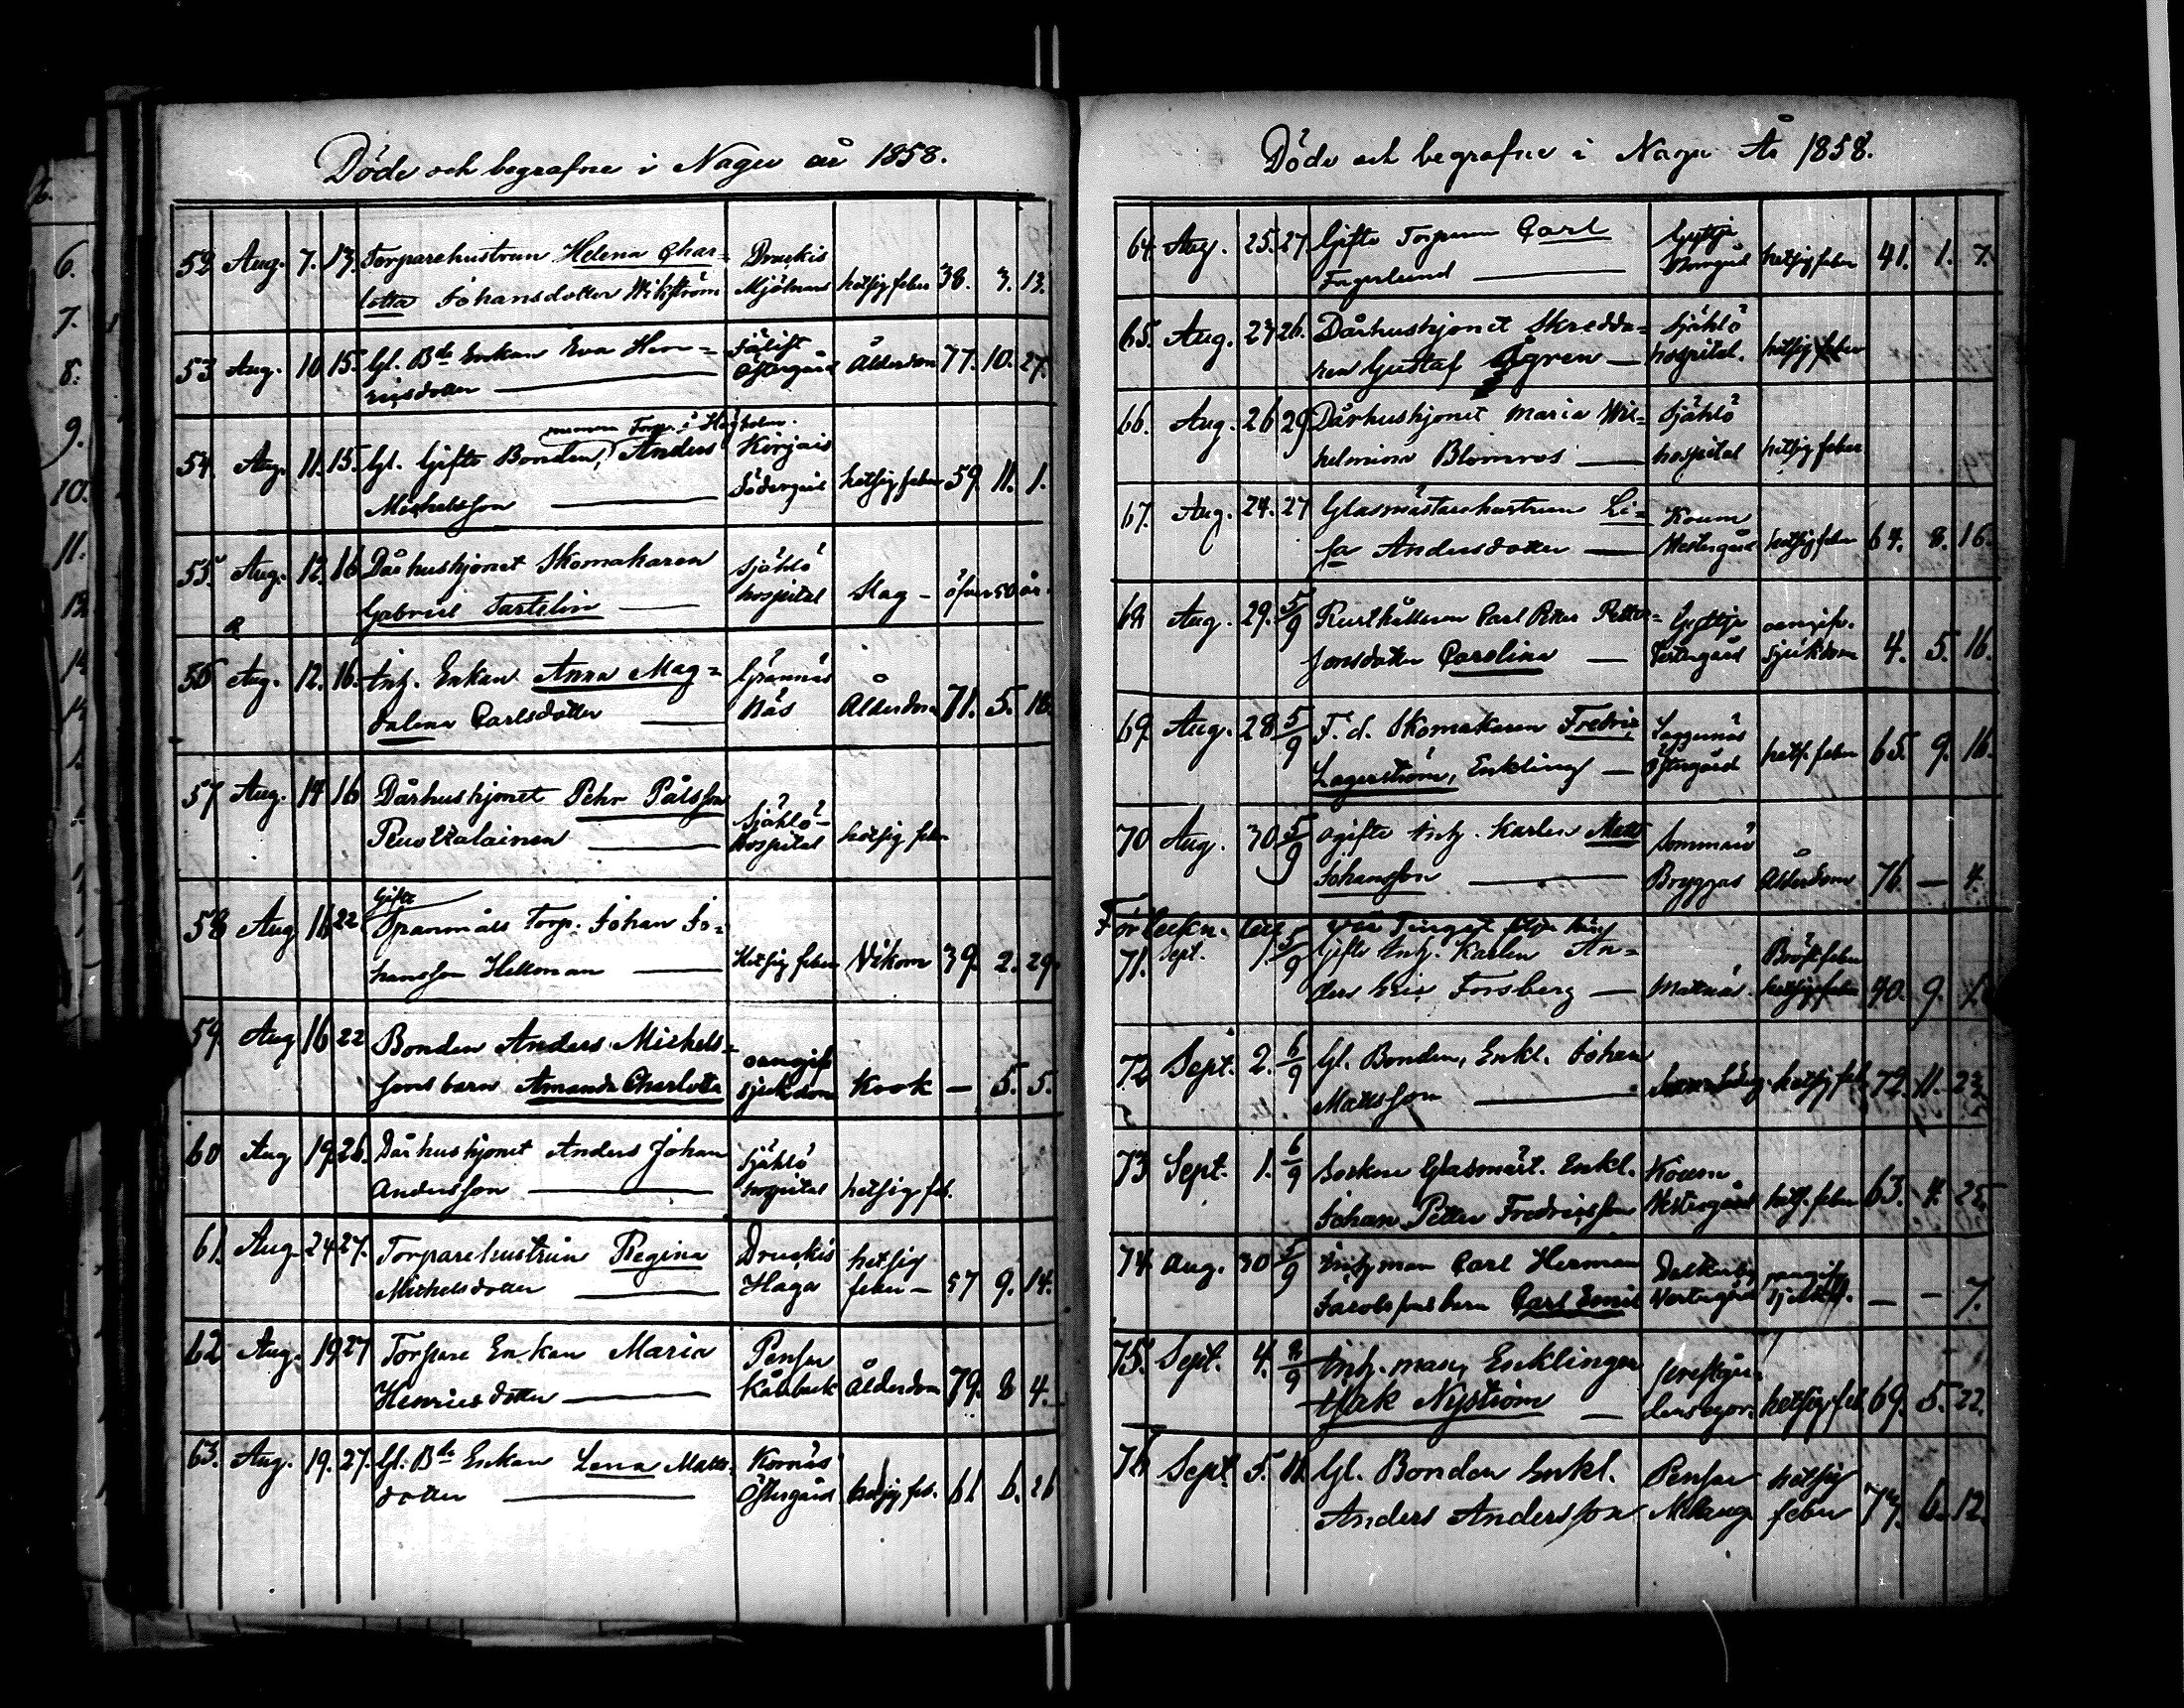 Döde och begrafne i Nagu år 1858.
52 Aug. 7. 13. Torparehustrun Helena Char= Druckis
lotta Johansdotter Wikström Mjölnars hetsig feber 38. 3. 13.
53 Aug. 10. 15. Gl. Bde Enkan Eva Hen=
ricsdotter Östergård Ålderdom 77. 10. 27.
numera Torp. i Högholm.
54. Aug. 11. 15. Gl. Gifte Bonden, Anders Kirjais
Michelsson Södergård hetsig feber 59. 11. 1.
55. Aug. 12. 16 Dårhushjonet Skomakaren Själö
Gabriel Tartelin hospital Slag - öfver 50 år.
56 Aug. 12. 16. Inh. Enkan Anna Mag= Grännäs
dalena Carlsdotter Näs Ålderdom 71. 5. 18.
57 Aug. 14 16 Dårhushjonet Pehr Pålsson
Själö-
hospital hetsig feber
Gifte
58 Aug 16 22 Spanmåls Torp. Johan Jo=
hansson Hellman Hetsig feber Vikom 39. 2. 29.
59. Aug 16 22 Bonden Anders Michels= oangifv.
sons barn Amanda Charlotta sjukdom Krok — 5. 5.
60 Aug 19. 26. Dårhushjonet Anders Johan Själö
Andersson hospital hetsig feb.
61. Aug. 24. 27. Torparehustrun Regina Druckis hetsig
Michelsdotter Haga feber - 57 9. 14.
62 Aug. 19. 27 Torpare Enkan Maria Pensar
Henricsdotter Ålderdom 79. 8 4.
63. Aug. 19. 27. Gl. Bde Enkan Lena Matts- Kornäs
dotter Östergård hetsig feb. 61 6. 26
Döde och begrafne i Nagu År 1858.
64. Aug. 25. 27. Gifte Torparen Carl Gyttja
Fagerlund hetsig feber 41. 1. 7.
65. Aug. 24 26. Dårhushjonet Skredda= Själö
ren Gustaf Ågren hospital. hetsig feber
66. Aug. 26 29 Dårhushjonet Maria Wil= Själö
helmina Blomros hospital hetsig feber
67. Aug. 24. 27 Glasmästarehustrun Li=
sa Andersdotter Westergård hetsig feber 64. 8. 16.
68 Aug. 29. 5/9 Rusthållaren Carl Petter Petters= Gyttja oangifv.
sons dotter Carolina Westergård sjukdom 4. 5. 16.
69. Aug. 28 5/9 F. d. Skomakaren Fredric
Lagerström, Enkling Östergård hets. feber 65. 9. 16.
70 Aug. 30 5/9 ogifte Inh. Karlen Matts
Johansson Bryggas Ålderdom 76. — 4.
Förteckn. till
71. Sept. 1. 5/9 Gifte Inh. Karlen An= Bröstfeber
ders Eric Forsberg Mattnäs hetsig feber 40. 9. 1.
72 Sept. 2. 6/9 Gl. Bonden, Enkl. Johan
Mattsson hetsig feb. 72. 11. 23.
73 Sept. 1. 6/9 Socken Glasmäst. Enkl.
Johan Petter Fredricsson Westergård hets. feber 63. 4. 25.
74 Aug. 30 5/9 Inhyman Carl Herman Dalkarby oangifv.
Jacobssons barn Carl Emil Westergård — — 7.
75. Sept. 4. 8/9 Inh. man, Enklingen
Isak Nyström hetsig feb. 69. 5. 22.
76 Sept. 5. 11. Gl. Bonden Enkl. Pensar hetsig
Anders Andersson feber 74. 6. 12.